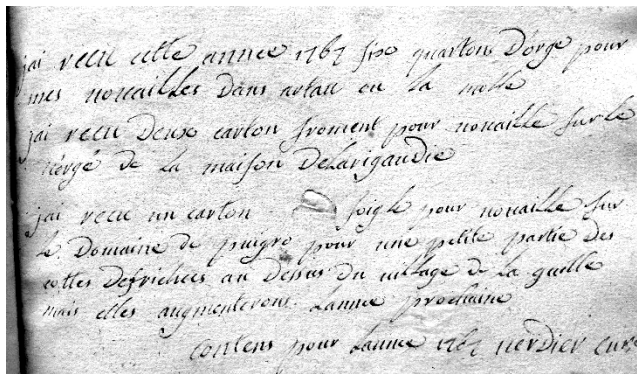 jai recu cette annee 1767 six quartons D'orge pour
mes nouailles Dans artau ou la motte
jai recu Deux carton froment pour nouaille sur le
vergé de la maison Delarigaudie
jai recu un carton soigle pour nouaille sur
le Domaine de puigro pour une petite partie des
cottes Defrichees au Dessus Du village de la guille
mais elles augmenterons Lannee prochaine
contens pour Lannee 1767 verdier curé